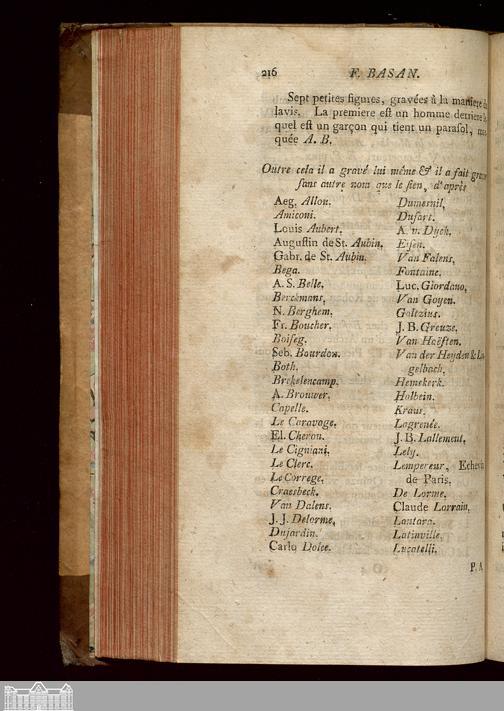 216 F. BASAN.
Sept petites figures, gravées à la maniere de
lavis. La premiere est un homme derriere le
quel est un garçon qui tient un parasol,
quée A. B.
Outre cela il a gravé lui même & il a fait
sans autre nom que le sien, d'après
Aeg. Allou.
Amiconi.
Louis Aubert.
Augustin de St. Aubin.
Gabr. de St. Aubin.
Bega.
A. S. Belle.
Berckmans.
N. Berghem.
Fr. Boucher.
Boiseg.
Seb. Bourdon.
Both.
Brekelencamp.
A. Brouwer.
Capelle.
Le Caravage.
El. Cheron.
Le Cigniani.
Le Clerc.
Le Correge.
Craesbeck.
Van Dalens.
J. J. Delorme.
Dujardin.
Carlo Dolce.
Dumesnil.
Dusart.
A. v. Dyck.
Eisen.
Van Falens.
Fontaine.
Luc. Giordano.
Van Goyen.
Goltzius.
J. B. Greuze.
Van Haëften.
Van der Heyden &
gelbach.
Hemskerk.
Holbein.
Kraus.
Lagrenée.
J. B. Lallement.
Lely.
Lempereur, Echevin
de Paris.
De Lorme.
Claude Lorrain.
Lantara.
Latinville.
Lucatelli.
P. A